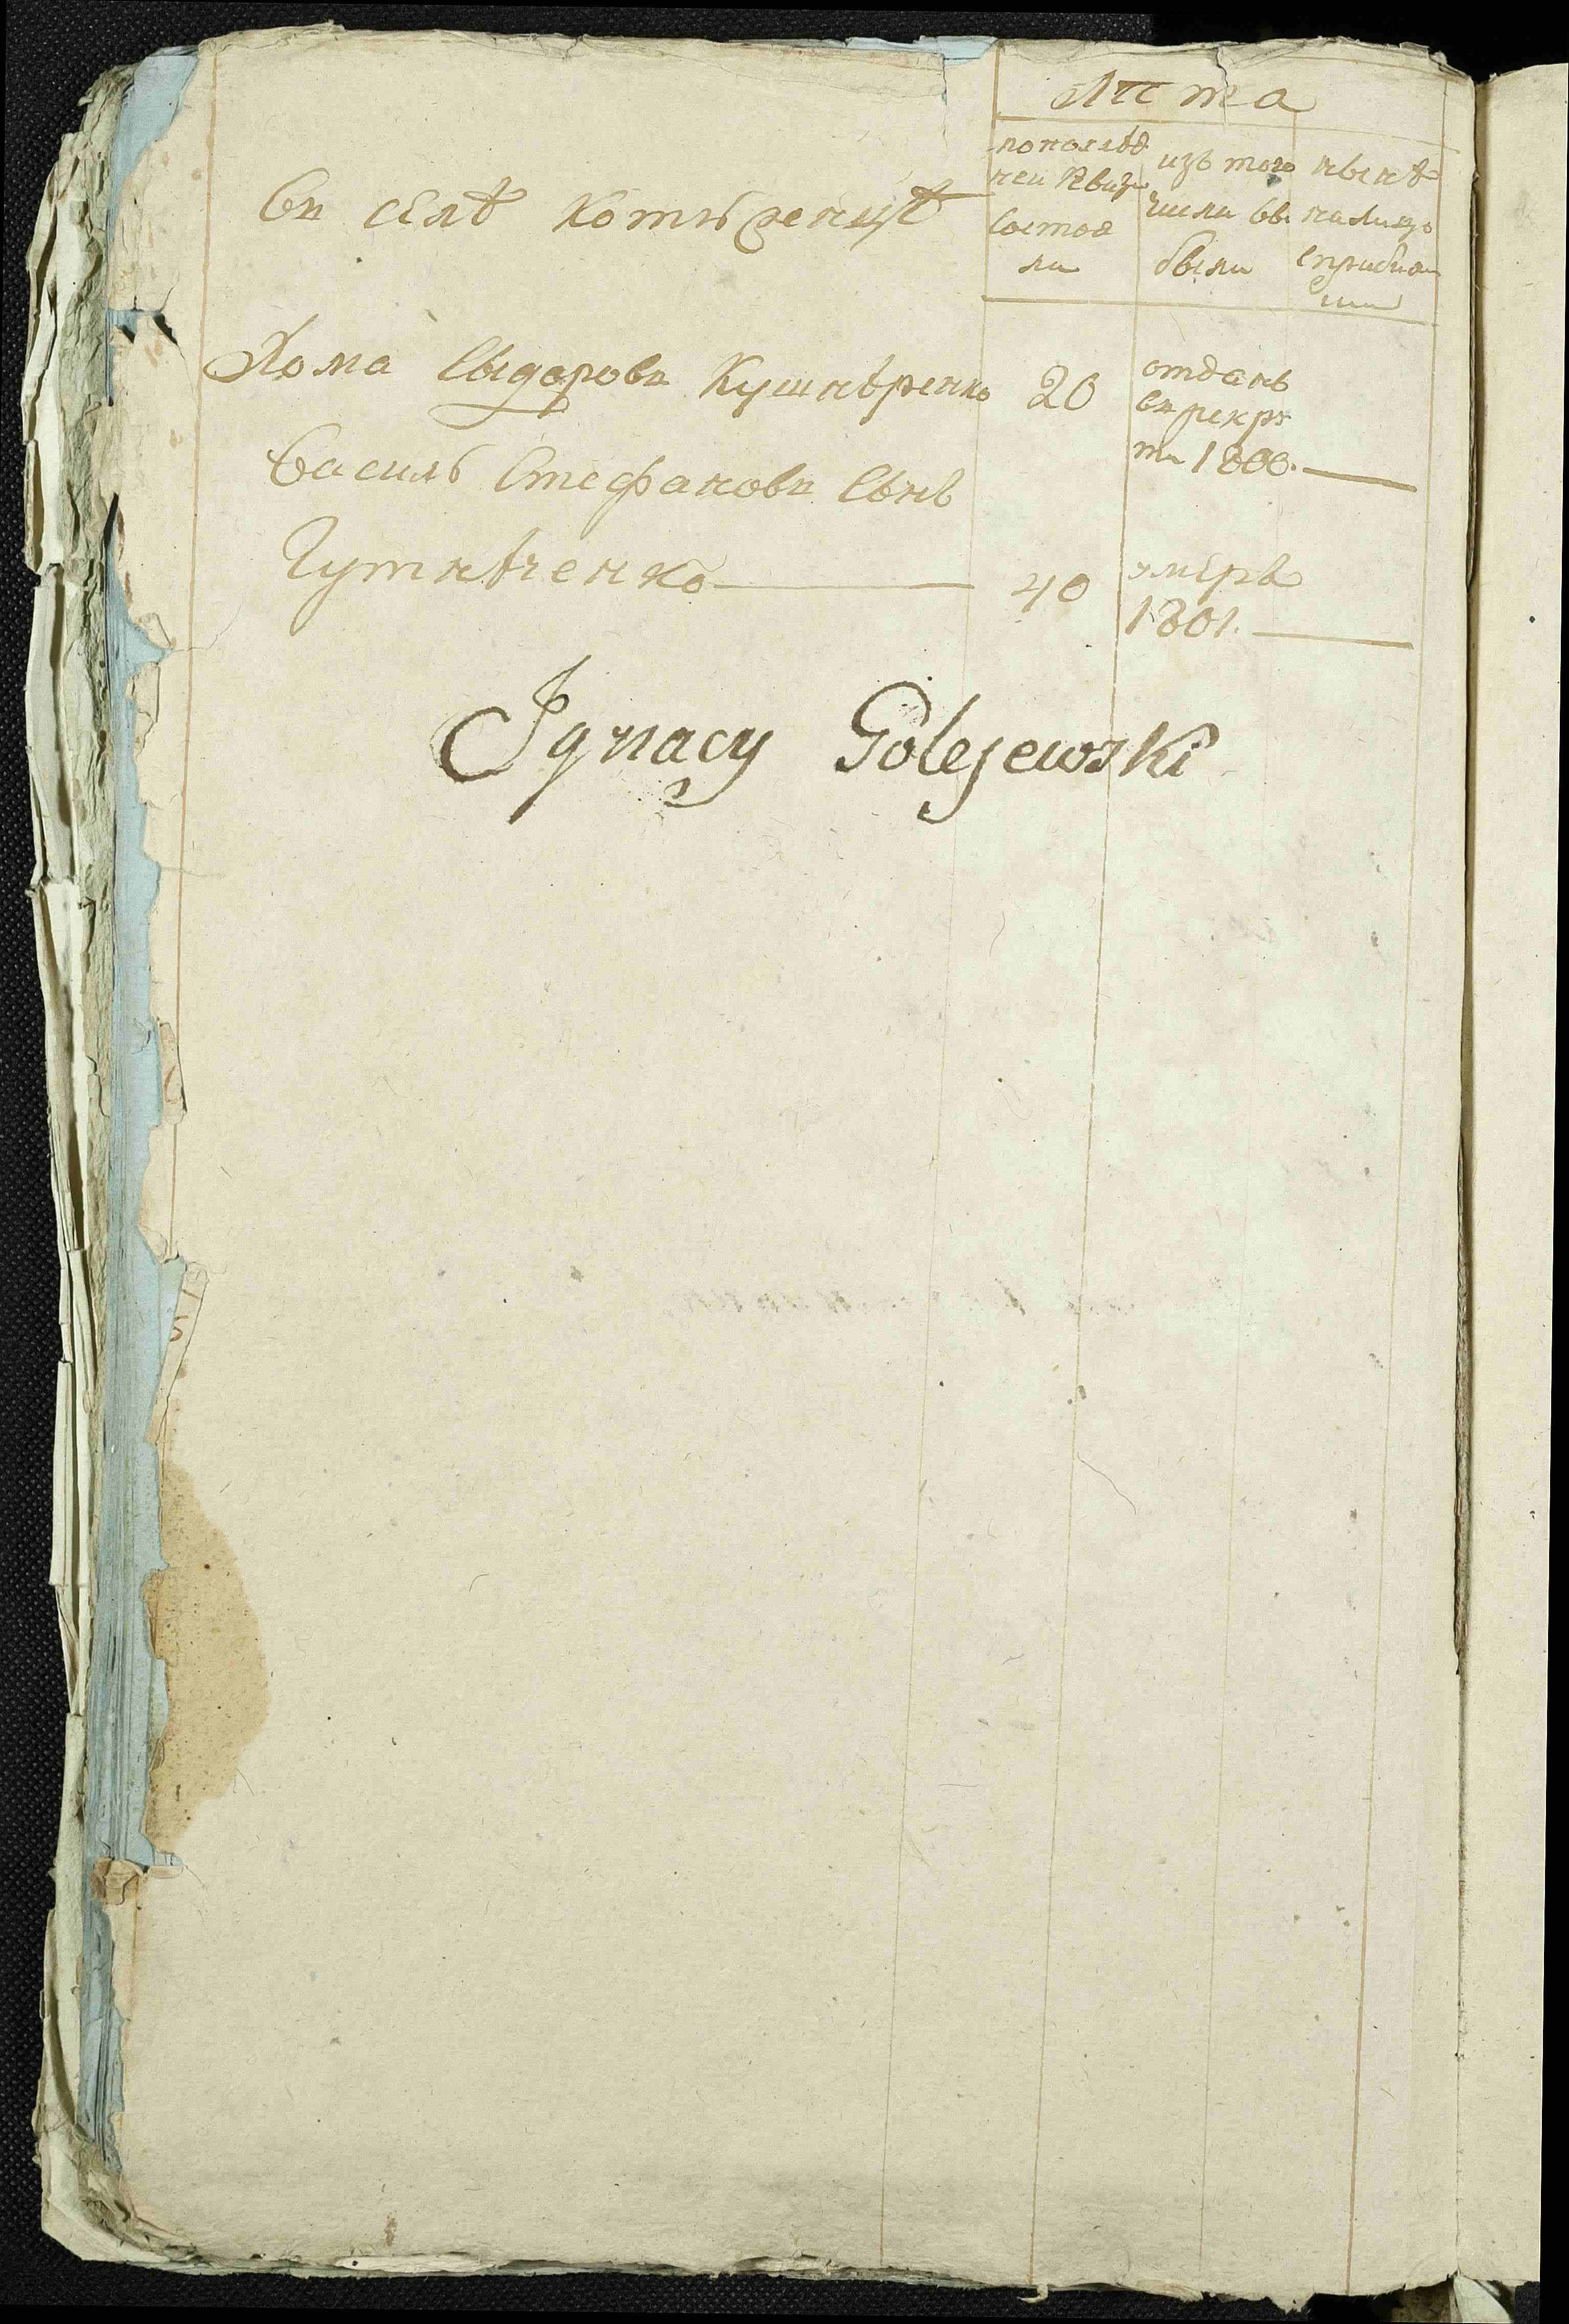 Лѣта
въ селѣ Котюженцѣ
пополѣд
ней Ревизи
состоя
ли
изъ того
числа вы
были
нынѣ
налицо
сприбыв
ши
Хома Сыдоровъ Кушнѣренко 20
отданъ
въ рекру
ты 1800.
Василь Стефановъ сынъ
Гутнѣченко 40
умеръ
1801.
Jgnacy Golejewski